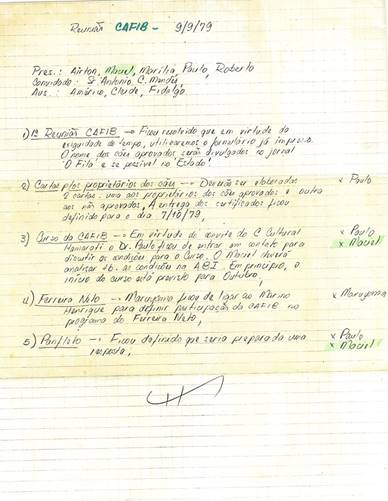 Reunião CAFIB - 9/9/79
Pres.: Airton, Maciel, Marilia, Paulo, Roberto
Convidado: Sr Antonio C. Mendes
Aus.: Américo, Cleide, Fidalgo
1) 1ª Reunião CAFIB → Ficou resolvido que em virtude da
exiguidade de tempo, utilizaremos o formulário já impresso.
O nome dos cães aprovados serão divulgados no jornal
"O Fila" e se possível no "Estado".
2) Cartas p/os proprietários dos cães → Deverão ser elaboradas x Paulo
2 cartas: uma aos proprietários dos cães aprovados e outra
aos não aprovados. A entrega dos certificados ficou
definido para o dia 7/10/79.
3) Curso do CAFIB → Em virtude do convite do C. Cultural x Paulo
Itamarati o Dr. Paulo ficou de entrar em contato para x Maciel
discutir as condições para o Curso. O Maciel deverá
analisar tb. as condições na ABI. Em princípio, o
início do curso está previsto para Outubro.
4) Ferreira Neto → ficou de ligar ao Marino x
Henrique para definir participação do CAFIB no
programa do Ferreira Neto.
5) Panfleto → Ficou definido que seria preparada uma x Paulo
resposta. x Maciel